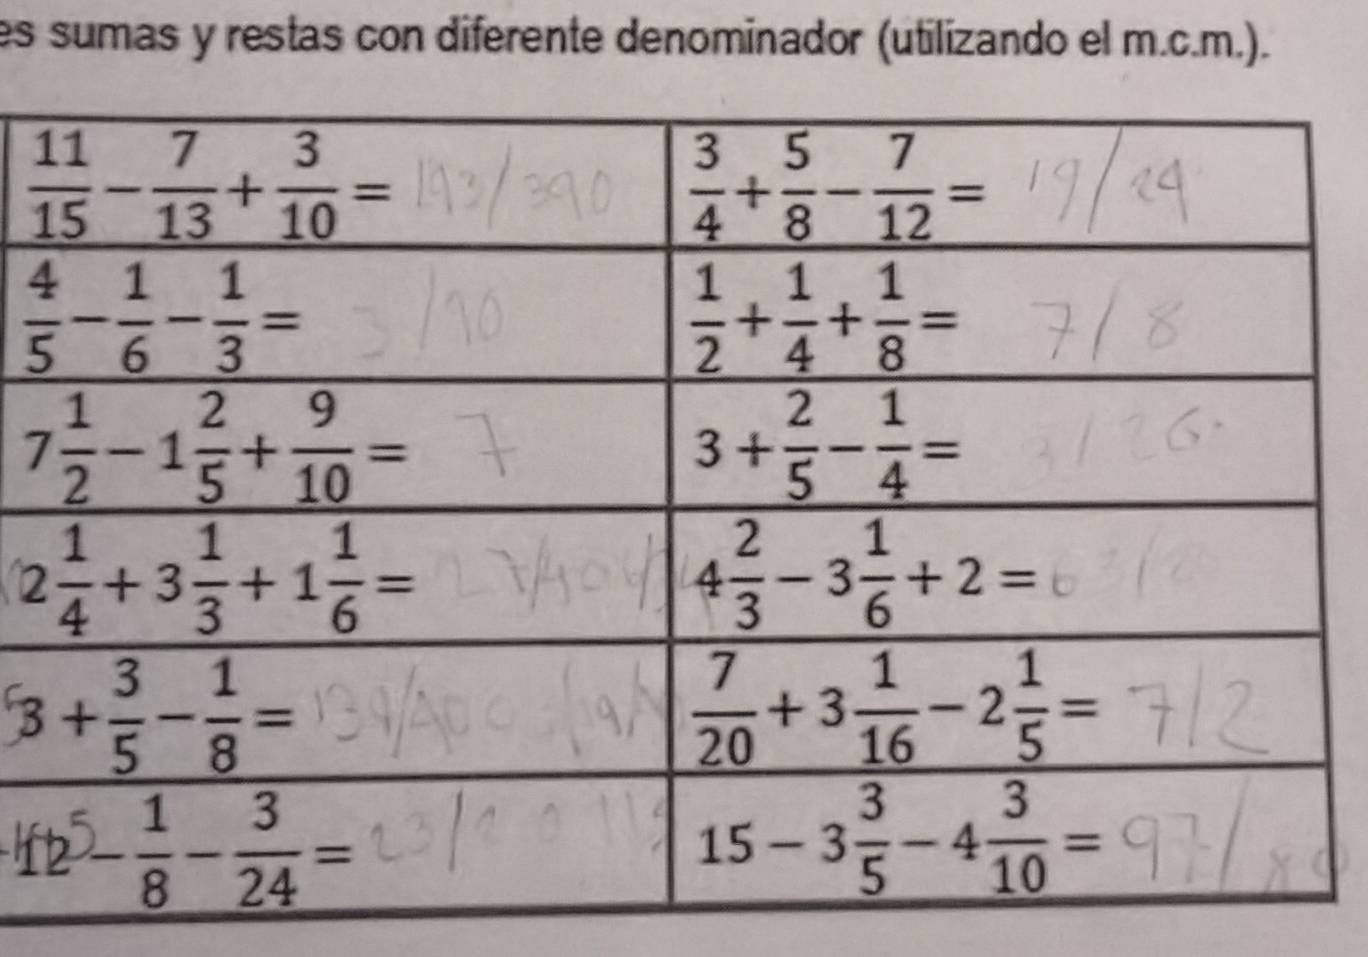 es sumas y restas con diferente denominador (utilizando el m.c.m.).
11/15 − 7/13 + 3/10 = 193/390
3/4 + 5/8 − 7/12 = 19/24
4/5 − 1/6 − 1/3 = 3/10
1/2 + 1/4 + 1/8 = 7/8
7 1/2 − 1 2/5 + 9/10 = 7
3 + 2/5 − 1/4 =
2 1/4 + 3 1/3 + 1 1/6 =
4 2/3 − 3 1/6 + 2 =
3 + 3/5 − 1/8 =
7/20 + 3 1/16 − 2 1/5 = 7/2
12 − 1/8 − 3/24 =
15 − 3 3/5 − 4 3/10 = 97/